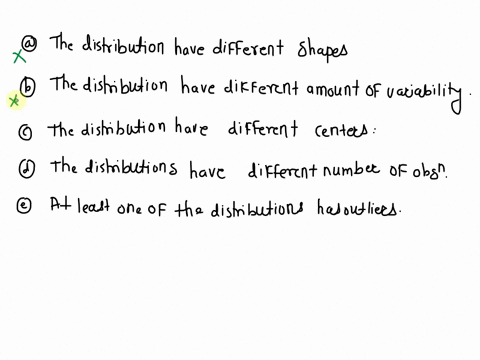 ⓐ The distribution have different shapes
ⓑ The distribution have different amount of variability.
ⓒ The distribution have different centers:
ⓓ The distributions have different number of obsⁿ.
ⓔ At least one of the distributions has outliers.